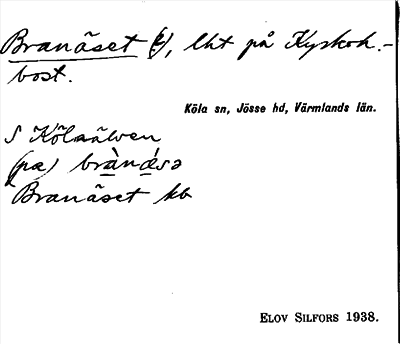 Branäset (ɛ), lht på Kyrkoh.-
bost.
Köla sn, Jösse hd, Värmlands län.
S Kölaälven
(pæ) brànɛ́sə
Branäset kb
ELOV SILFORS 1938.